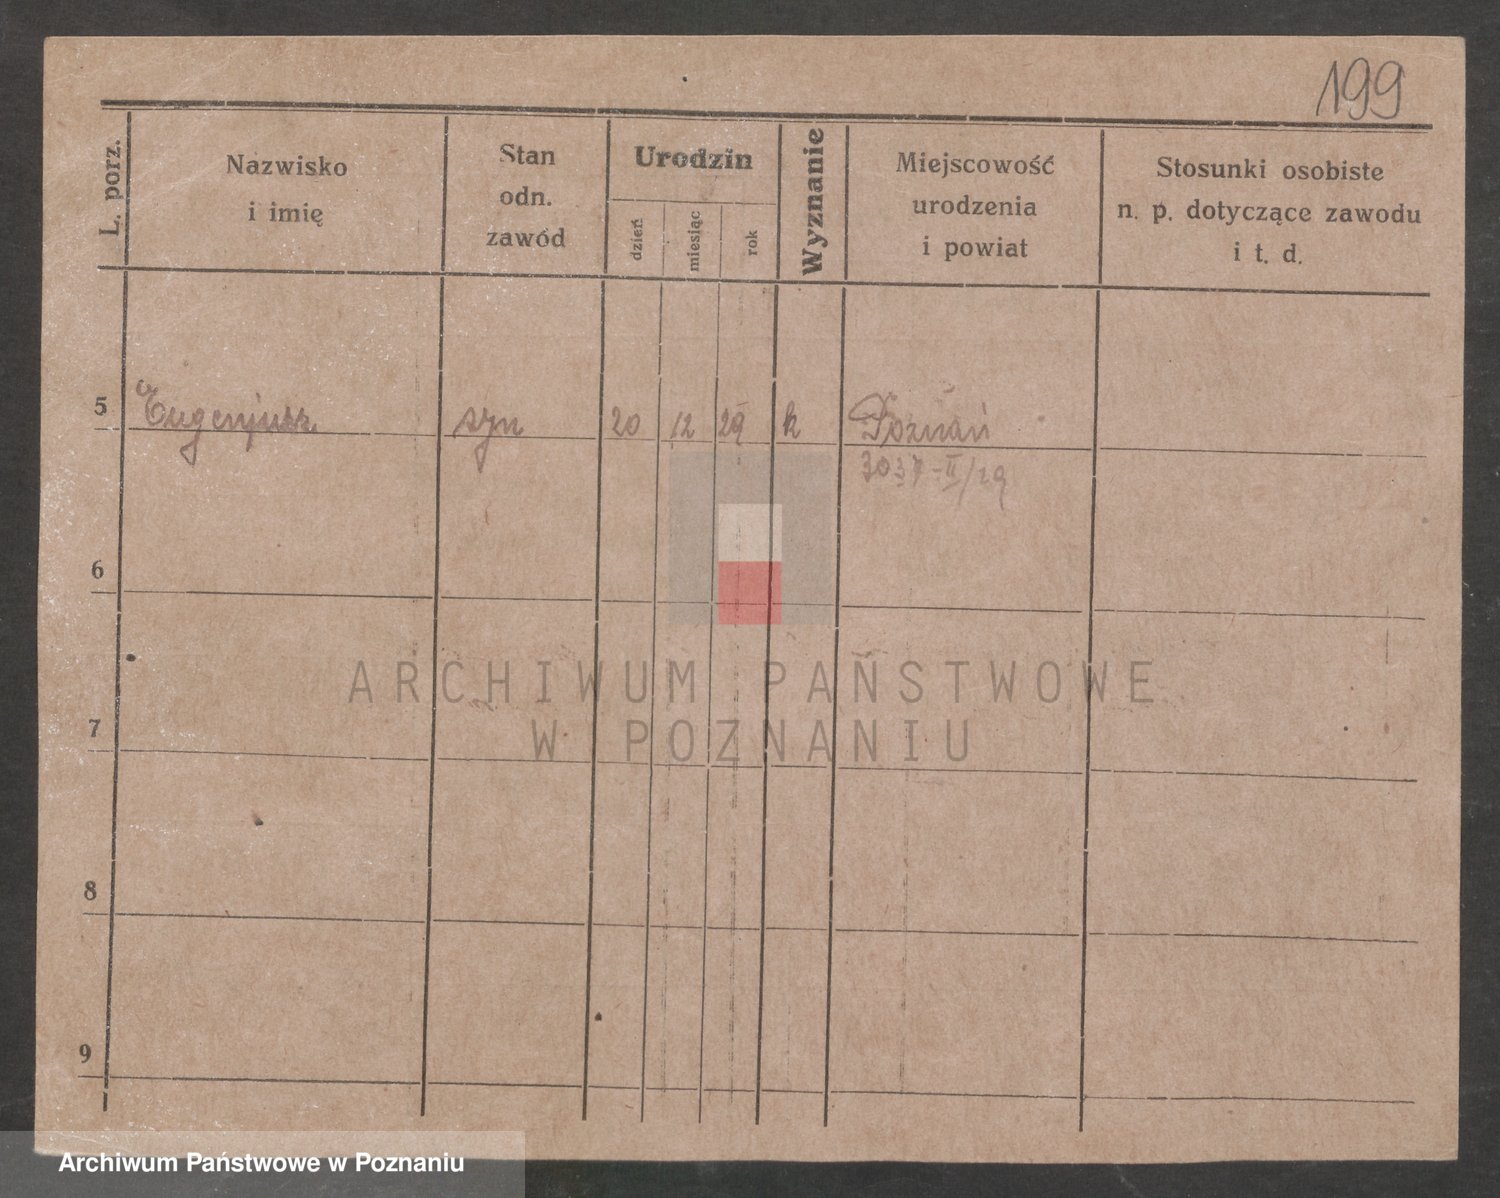 199
L. porz.
Nazwisko
i imię
Stan
odn.
zawód
Urodzin
dzień
miesiąc
rok
Wyznanie
Miejscowość
urodzenia
i powiat
Stosunki osobiste
n. p. dotyczące zawodu
i t. d.
5 Eugenjusz syn 20 12 29 k Poznań
3037-II/29
6
7
8
9
ARCHIWUM PAŃSTWOWE
W POZNANIU
Archiwum Państwowe w Poznaniu